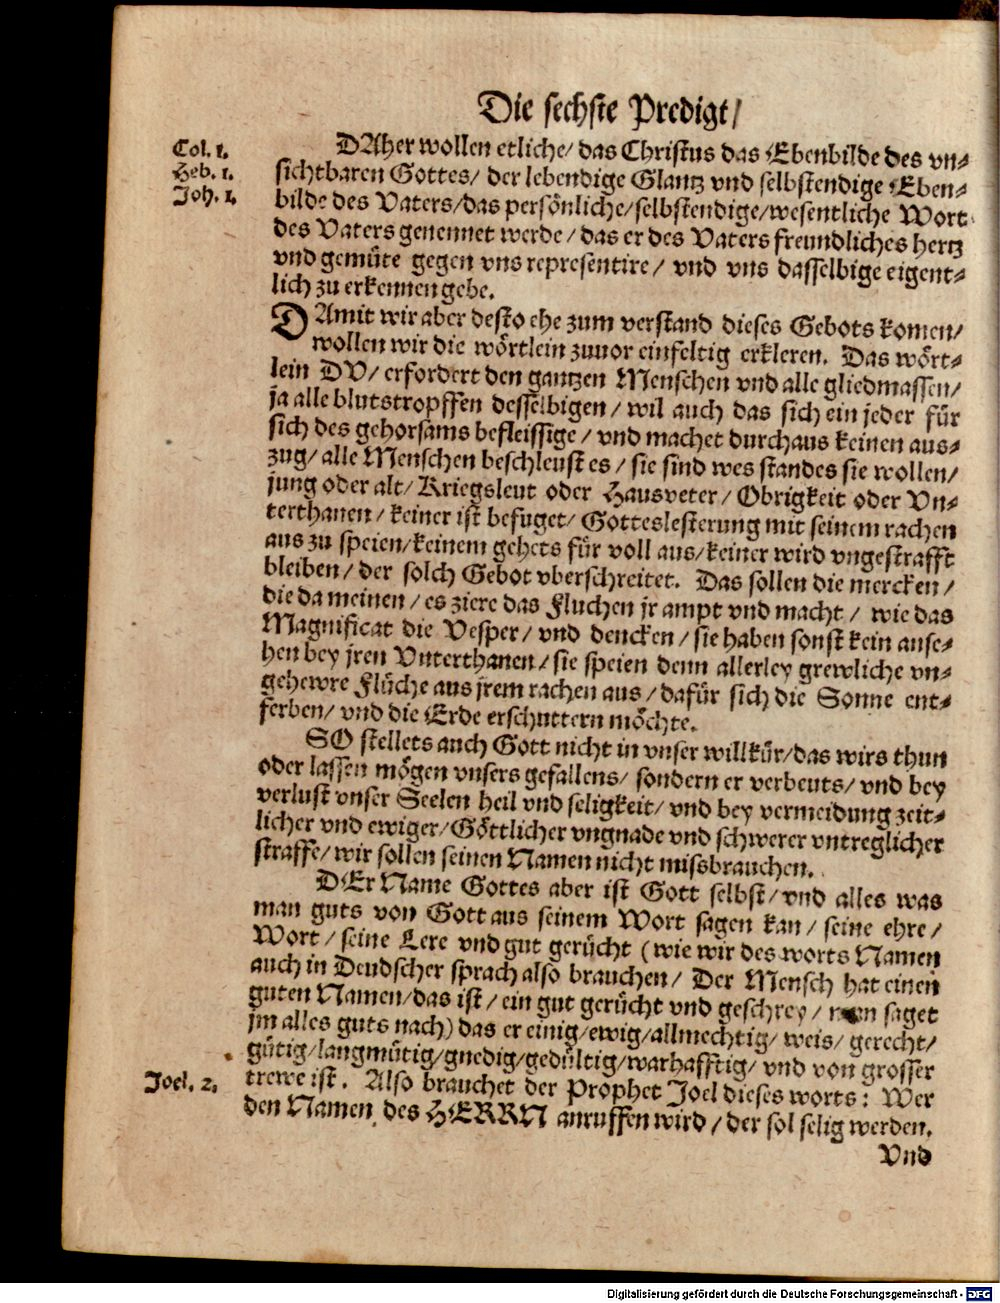 Die sechste Predigt/
Col. 1.
Heb. 1.
Joh. 1.
DAher wollen etliche/ das Christus das Ebenbilde des vn-
sichtbaren Gottes/ der lebendige Glantz vnd selbstendige Eben-
bilde des Vaters/das persönliche/selbstendige/wesentliche Wort
des Vaters genennet werde/ das er des Vaters freundliches hertz
vnd gemüte gegen vns representire/ vnd vns dasselbige eigent-
lich zu erkennen gebe.
DAmit wir aber desto ehe zum verstand dieses Gebots komen/
wollen wir die wörtlein zuuor einfeltig erkleren. Das wört-
lein DV/ erfordert den gantzen Menschen vnd alle gliedmassen/
ja alle blutstropffen desselbigen/ wil auch das sich ein jeder für
sich des gehorsams befleissige/ vnd machet durchaus keinen aus-
zug/ alle Menschen beschleust es/ sie sind wes standes sie wollen/
jung oder alt/ Kriegsleut oder Hausveter/ Obrigkeit oder Vn-
terthanen/ keiner ist befuget/ Gotteslesterung mit seinem rachen
aus zu speien/keinem gehets für voll aus/keiner wird vngestrafft
bleiben/ der solch Gebot vberschreitet. Das sollen die mercken/
die da meinen/ es ziere das Fluchen jr ampt vnd macht/ wie das
Magnificat die Vesper/ vnd dencken/ sie haben sonst kein anse-
hen bey jren Vnterthanen/ sie speien denn allerley grewliche vn-
gehewre Flüche aus jrem rachen aus/ dafür sich die Sonne ent-
ferben/ vnd die Erde erschuttern möchte.
SO stellets auch Gott nicht in vnser willkür/das wirs thun
oder lassen mögen vnsers gefallens/ sondern er verbeuts/ vnd bey
verlust vnser Seelen heil vnd seligkeit/ vnd bey vermeidung zeit-
licher vnd ewiger/Göttlicher vngnade vnd schwerer vntreglicher
straffe/ wir sollen seinen Namen nicht missbrauchen.
DEr Name Gottes aber ist Gott selbst/ vnd alles was
man guts von Gott aus seinem Wort sagen kan/ seine ehre/
Wort/ seine Lere vnd gut gerücht (wie wir des worts Namen
auch in Deudscher sprach also brauchen/ Der Mensch hat einen
guten Namen/das ist/ ein gut gerücht vnd geschrey/ man saget
jm alles guts nach) das er einig/ewig/allmechtig/ weis/ gerecht/
gütig/langmütig/gnedig/gedültig/warhafftig/ vnd von grosser
Joel. 2.
trewe ist. Also brauchet der Prophet Joel dieses worts: Wer
den Namen des HERRN anruffen wird/ der sol selig werden.
Vnd
Digitalisierung gefördert durch die Deutsche Forschungsgemeinschaft - DFG